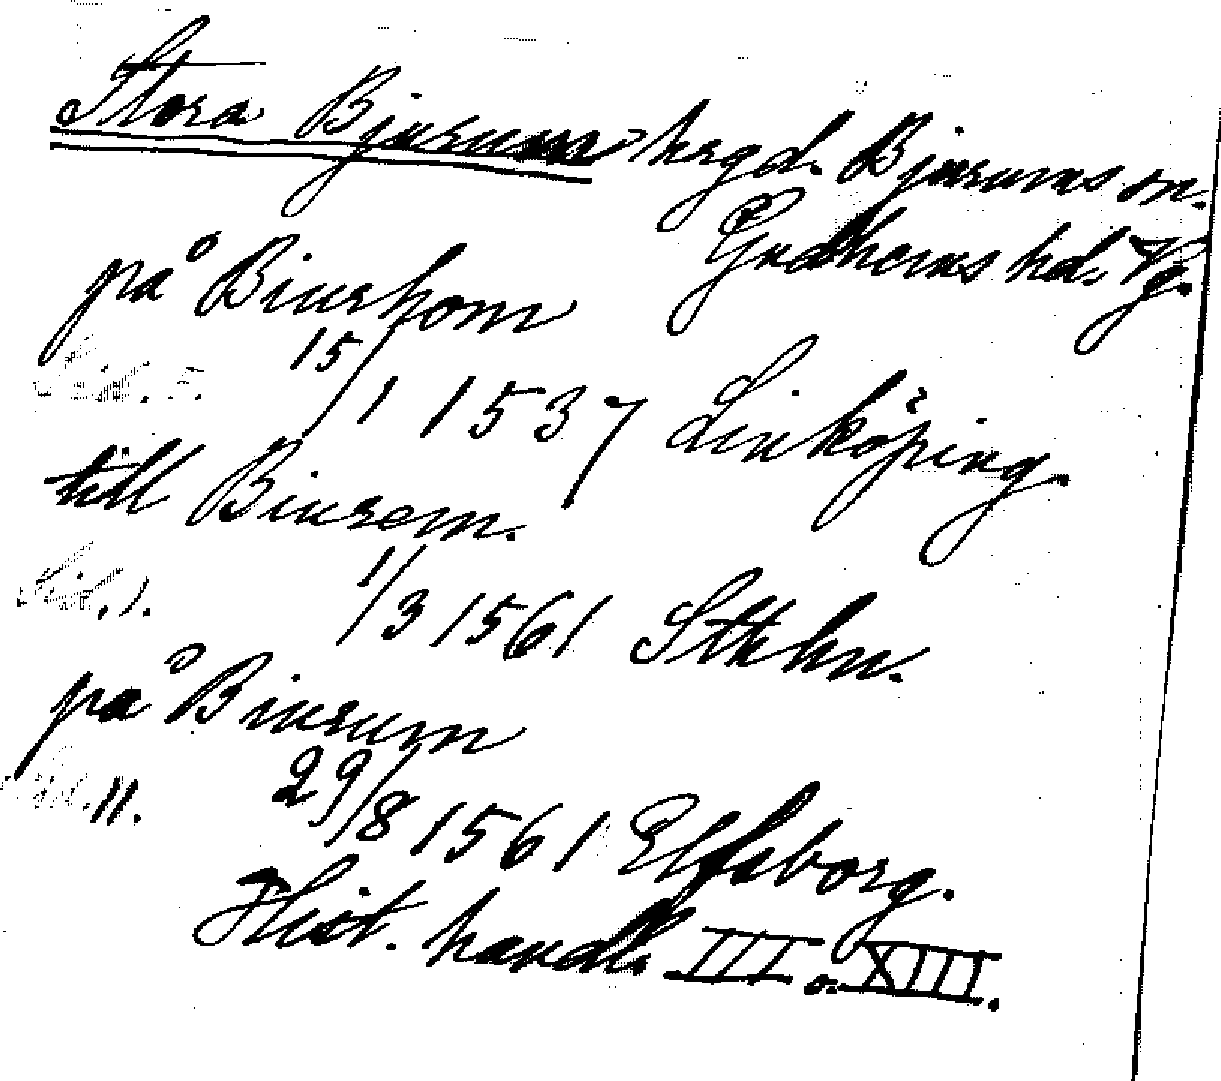 Stora Bjurum hrgd. Bjurums sn.
Gudhems hd. Vg.
på Biurhom
15/1 1537 Linköping.
till Biurem.
1/3 1561 Sthlm.
på Biurum
11. 29/8 1561 Elfsborg.
Hist. handl. III o. XIII.